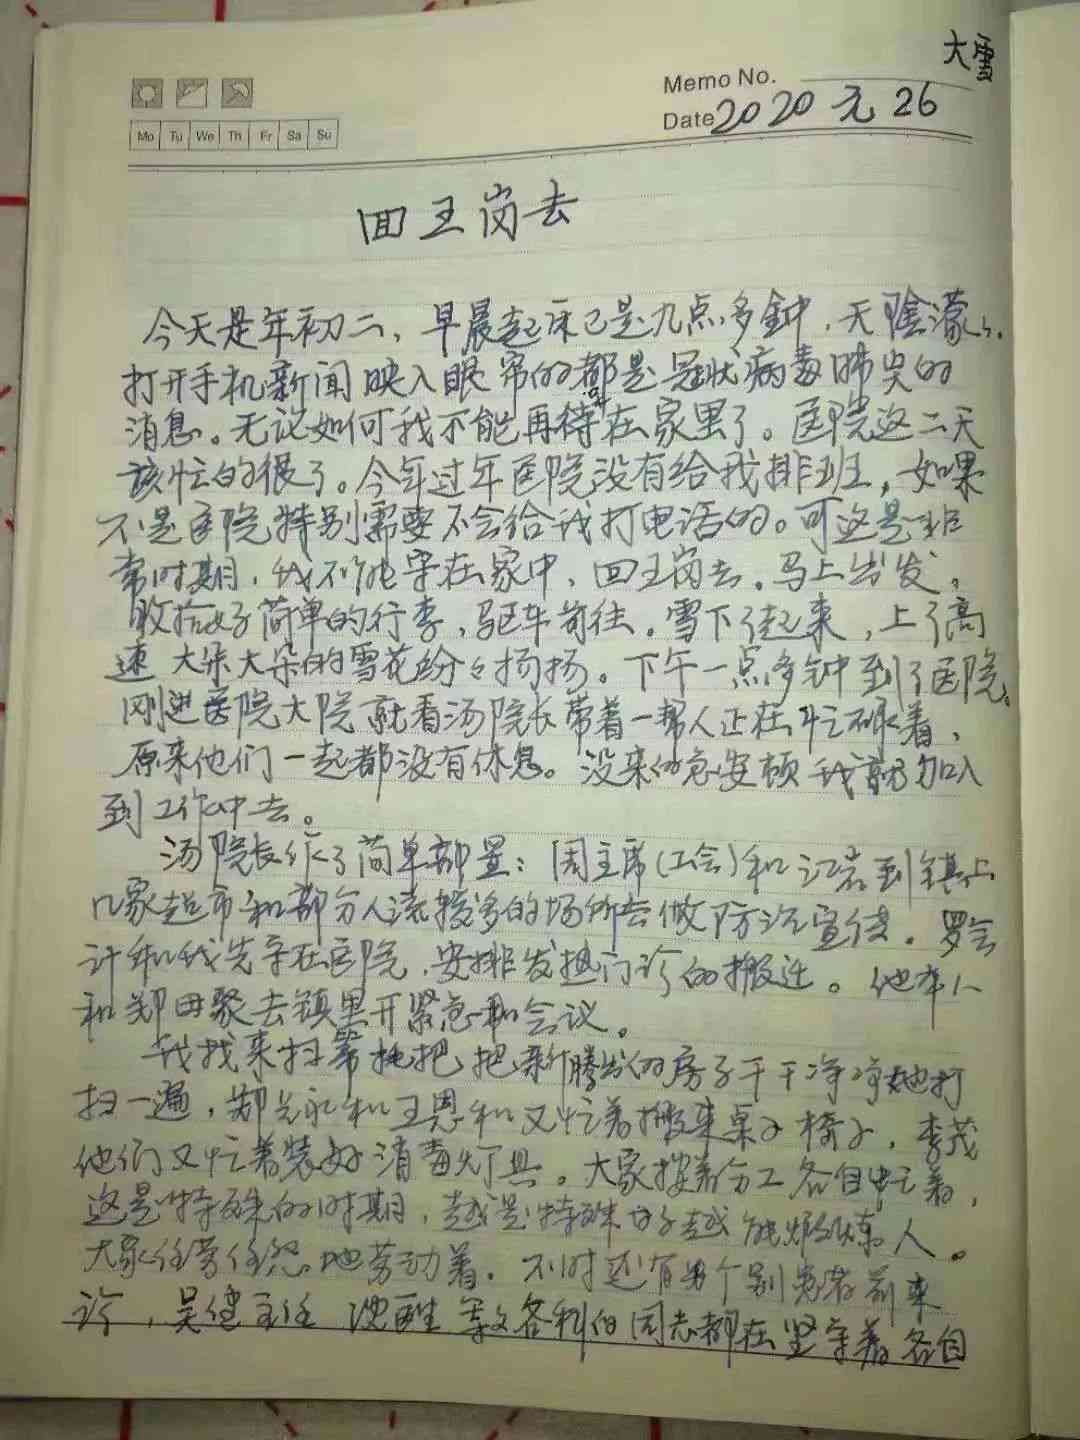 大雪
Memo No.
Mo Tu We Th Fr Sa Su
Date 2020 元 26
回王岗去
今天是年初二、早晨起床已是九点多钟，天阴濛々，
打开手机新闻映入眼帘的都是冠状病毒肺炎的
消息。无论如何我不能再待在家里了。医院这二天
该忙的很了。今年过年医院没有给我排班，如果
不是医院特别需要不会给我打电话的。可这是非
常时期，我不能守在家中，回王岗去。马上出发，
收拾好简单的行李，驱车前往。雪下了起来，上了高
速 大朵大朵的雪花纷々扬扬。下午一点多钟到了医院。
刚进医院大院就看汤院长带着一帮人正在忙碌着，
原来他们一起都没有休息。没来的急安顿我就加入
到工作中去。
汤院长作了简单部署：周主席(工会)和江岩到镇上
几家超市和部分人流较多的场所去做防治宣传。罗会
计和我先守在医院，安排发热门诊的搬迁。他本人
和郑田聚去镇里开紧急会议。
我找来扫帚拖把，把新腾出的房子干干净净地打
扫一遍，郑先永和王恩和又忙着搬来桌子椅子，李茂
他们又忙着装好消毒灯具。大家按着分工各自忙着，
这是特殊的时期，越是特殊时候越能煅炼人。
大家任劳任怨地劳动着。不时还有另个别患者前来
诊，吴健主任 沈医生 等 各科的同志都在坚守着各自